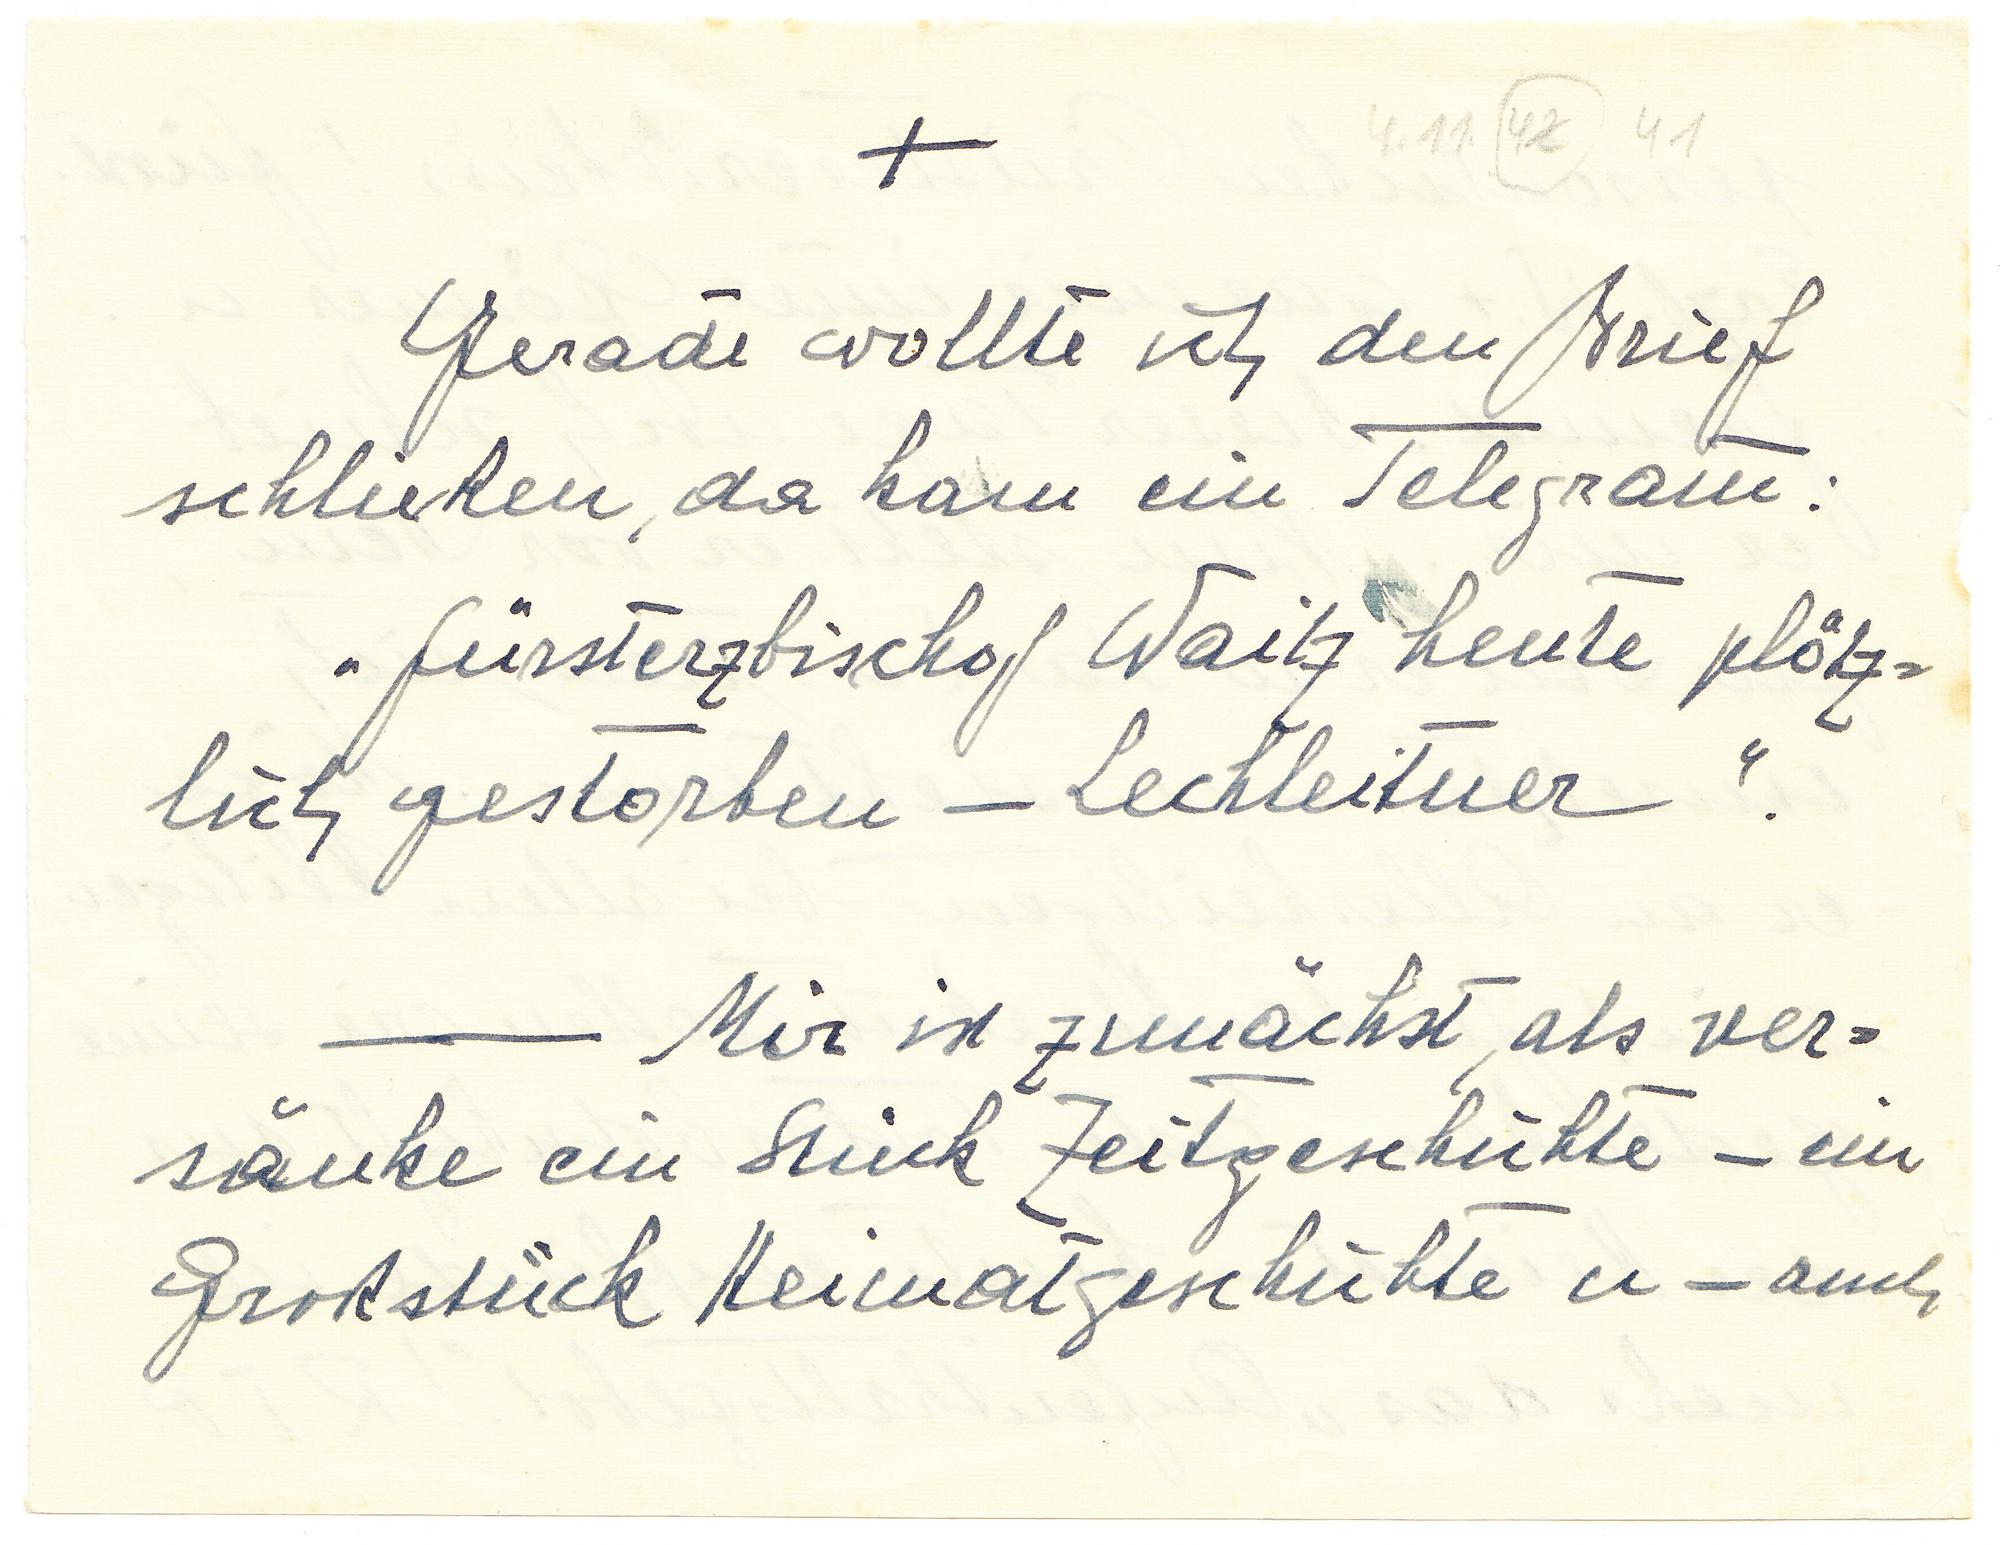 4.11. 42 41
+
Gerade wollte ich den Brief
schließen, da kam ein Telegram̅:
"Fürsterzbischof Waitz heute plötz=
lich gestorben — Lechleitner".
— Mir ist zunächst, als ver=
sänke ein Stück Zeitgeschichte – ein
Großstück Heimatgeschichte u – auch